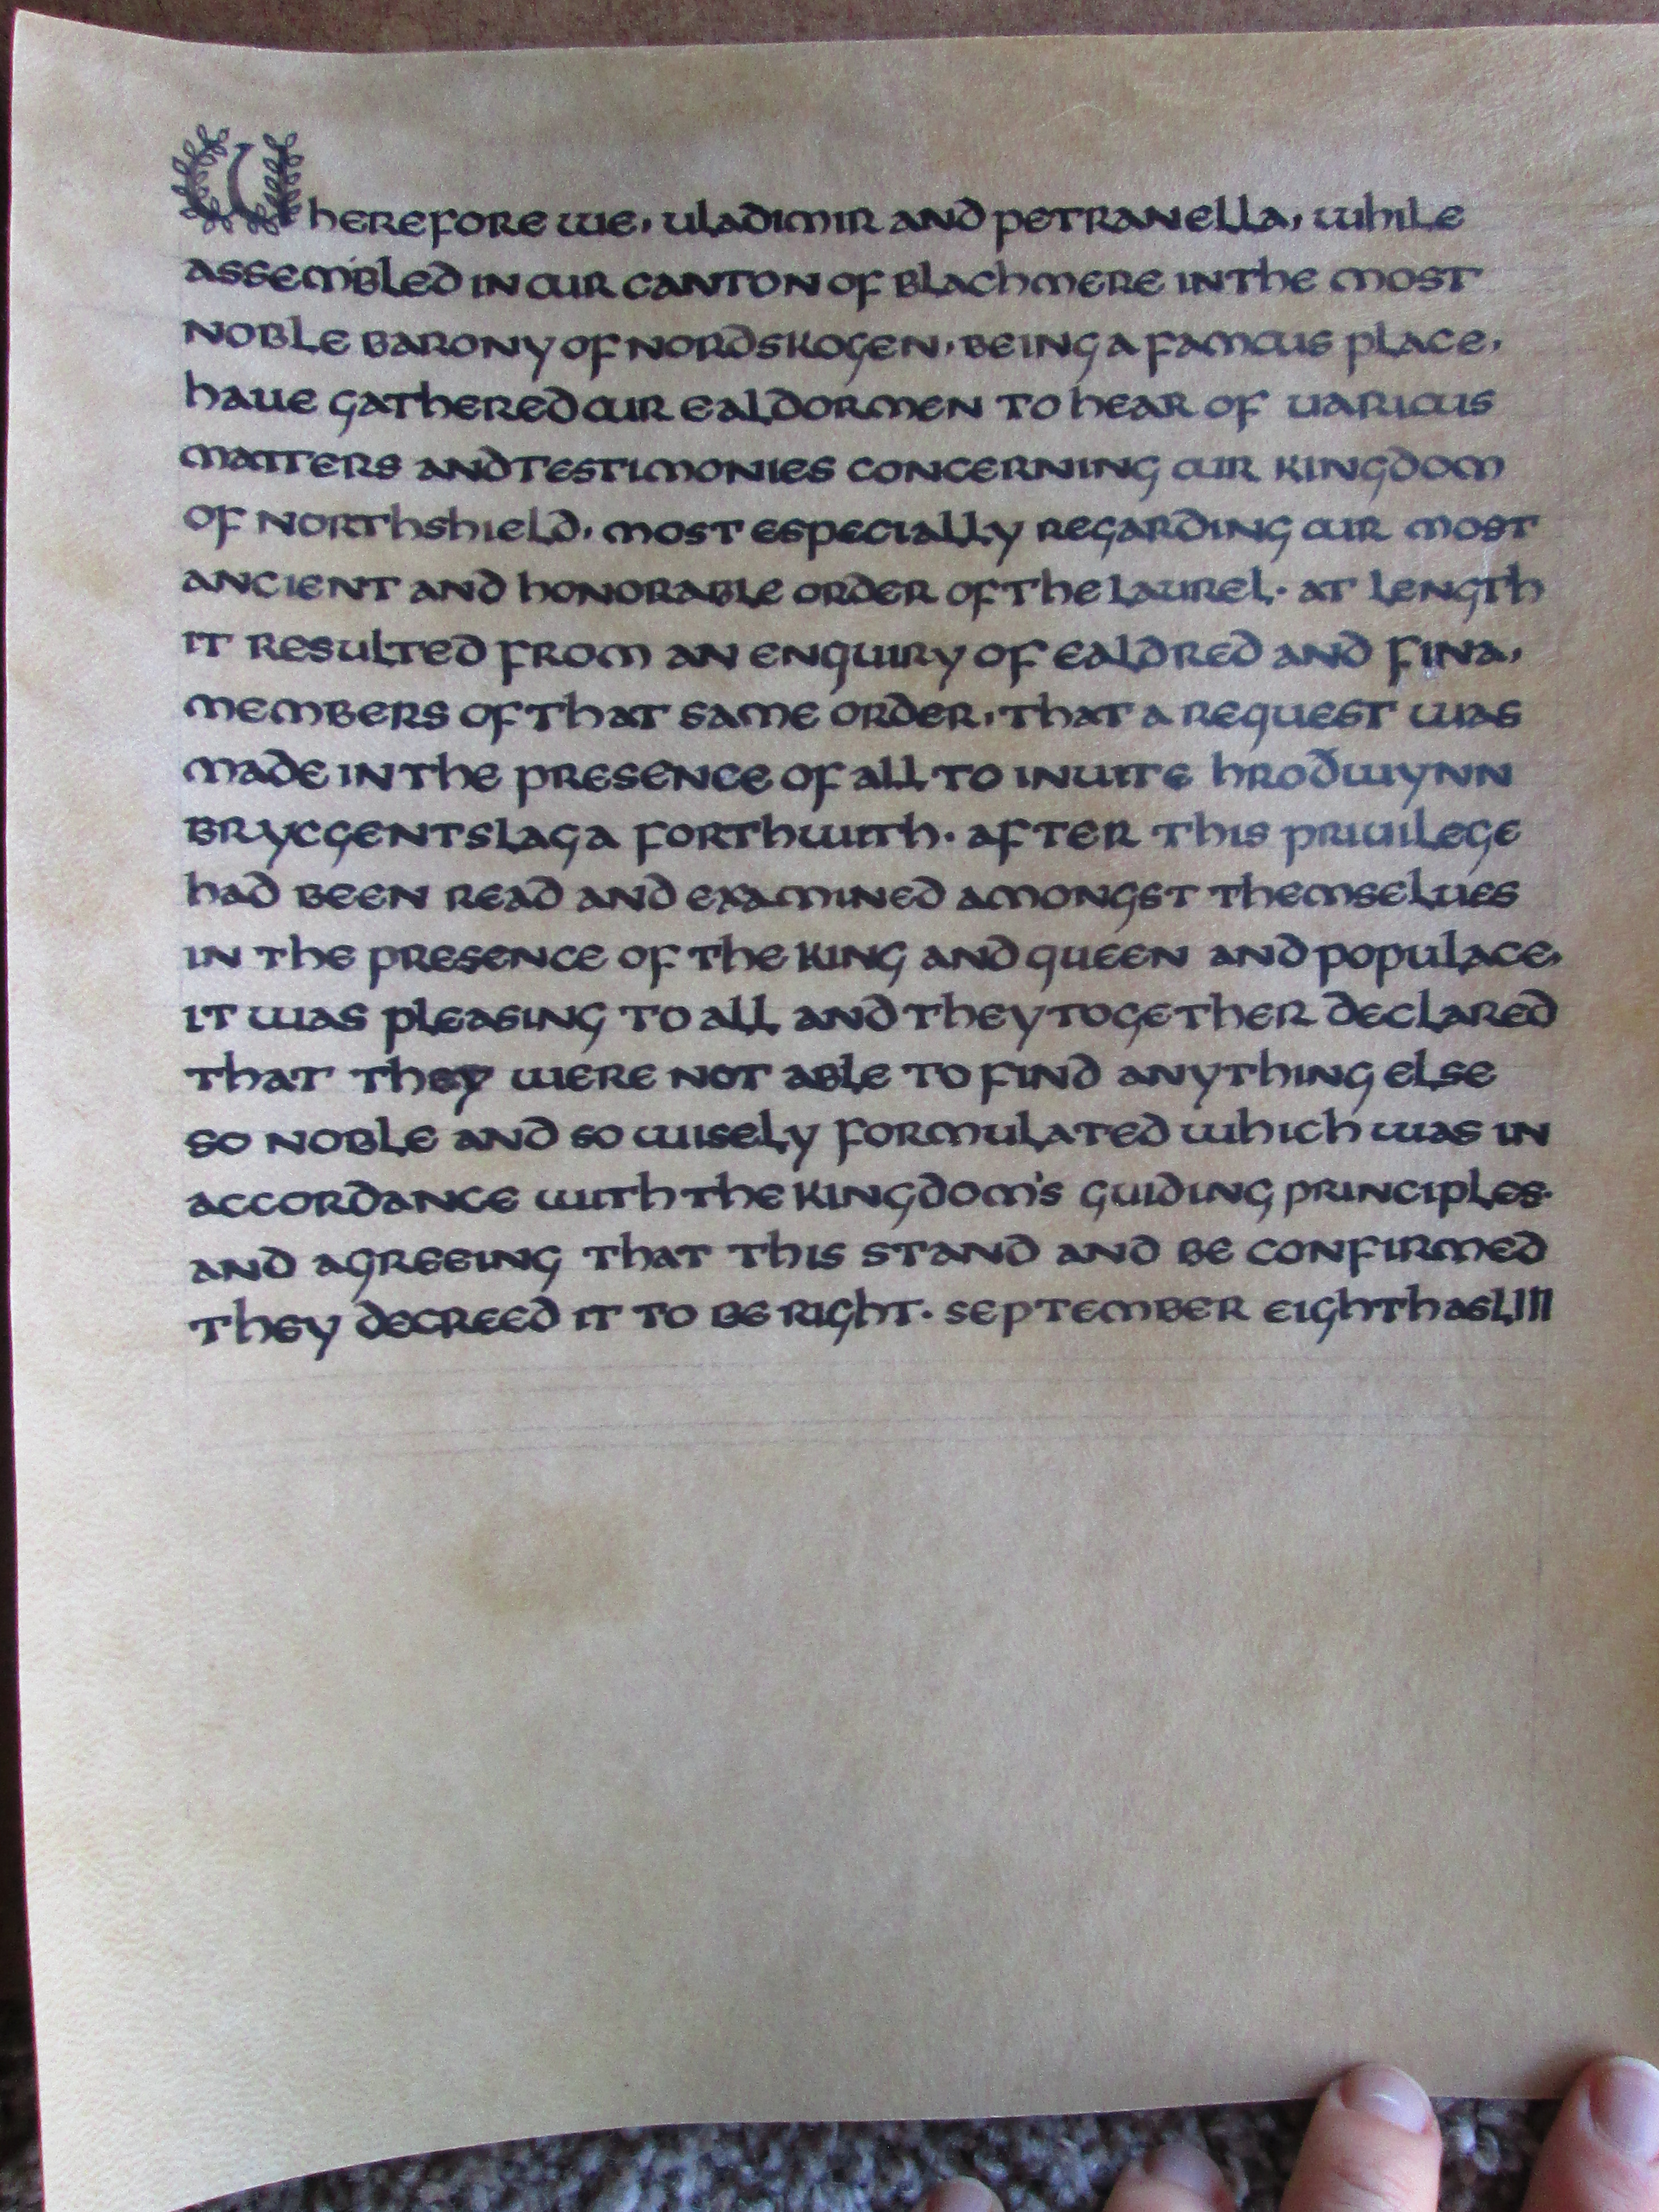 Wherefore we, uladimir and petranella, while
assembled in our canton of Blachmere in the most
noble barony of nordskogen, being a famous place,
haue gathered our ealdormen to hear of uarious
matters and testimonies concerning our kingdom
of northshield, most especially regarding our most
ancient and honorable order of the laurel. at length
it resulted from an enquiry of ealdred and fina,
members of that same order, that a request was
made in the presence of all to inuite hroðwynn
brycgentslaga forthwith. after this priuilege
had been read and examined amongst themselues
in the presence of the king and queen and populace,
it was pleasing to all and they together declared
that they were not able to find anything else
so noble and so wisely formulated which was in
accordance with the kingdom's guiding principles.
and agreeing that this stand and be confirmed
they decreed it to be right. september eighth as LIII